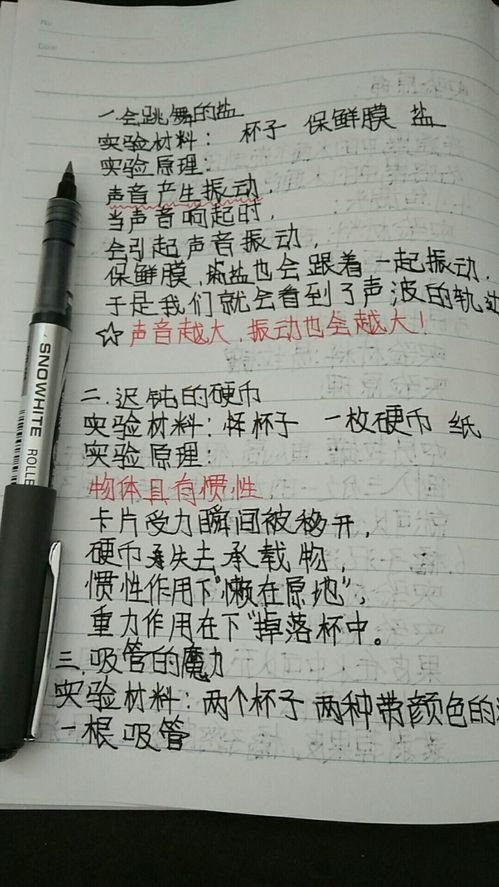 一.会跳舞的盐
实验材料: 杯子 保鲜膜 盐
实验原理:
声音产生振动
当声音响起时,
会引起声音振动,
保鲜膜,盐也会跟着一起振动.
于是我们就会看到了声波的轨迹
☆声音越大,振动也会越大!
二.迟钝的硬币
实验材料: 杯子 一枚硬币 纸
实验原理:
物体具有惯性
卡片受力瞬间被移开,
硬币失去承载物,
惯性作用下"懒在原地",
重力作用在下"掉落杯中。
三.吸管的魔力
实验材料: 两个杯子 两种带颜色的
一根吸管
SNOWHITE ROLLE